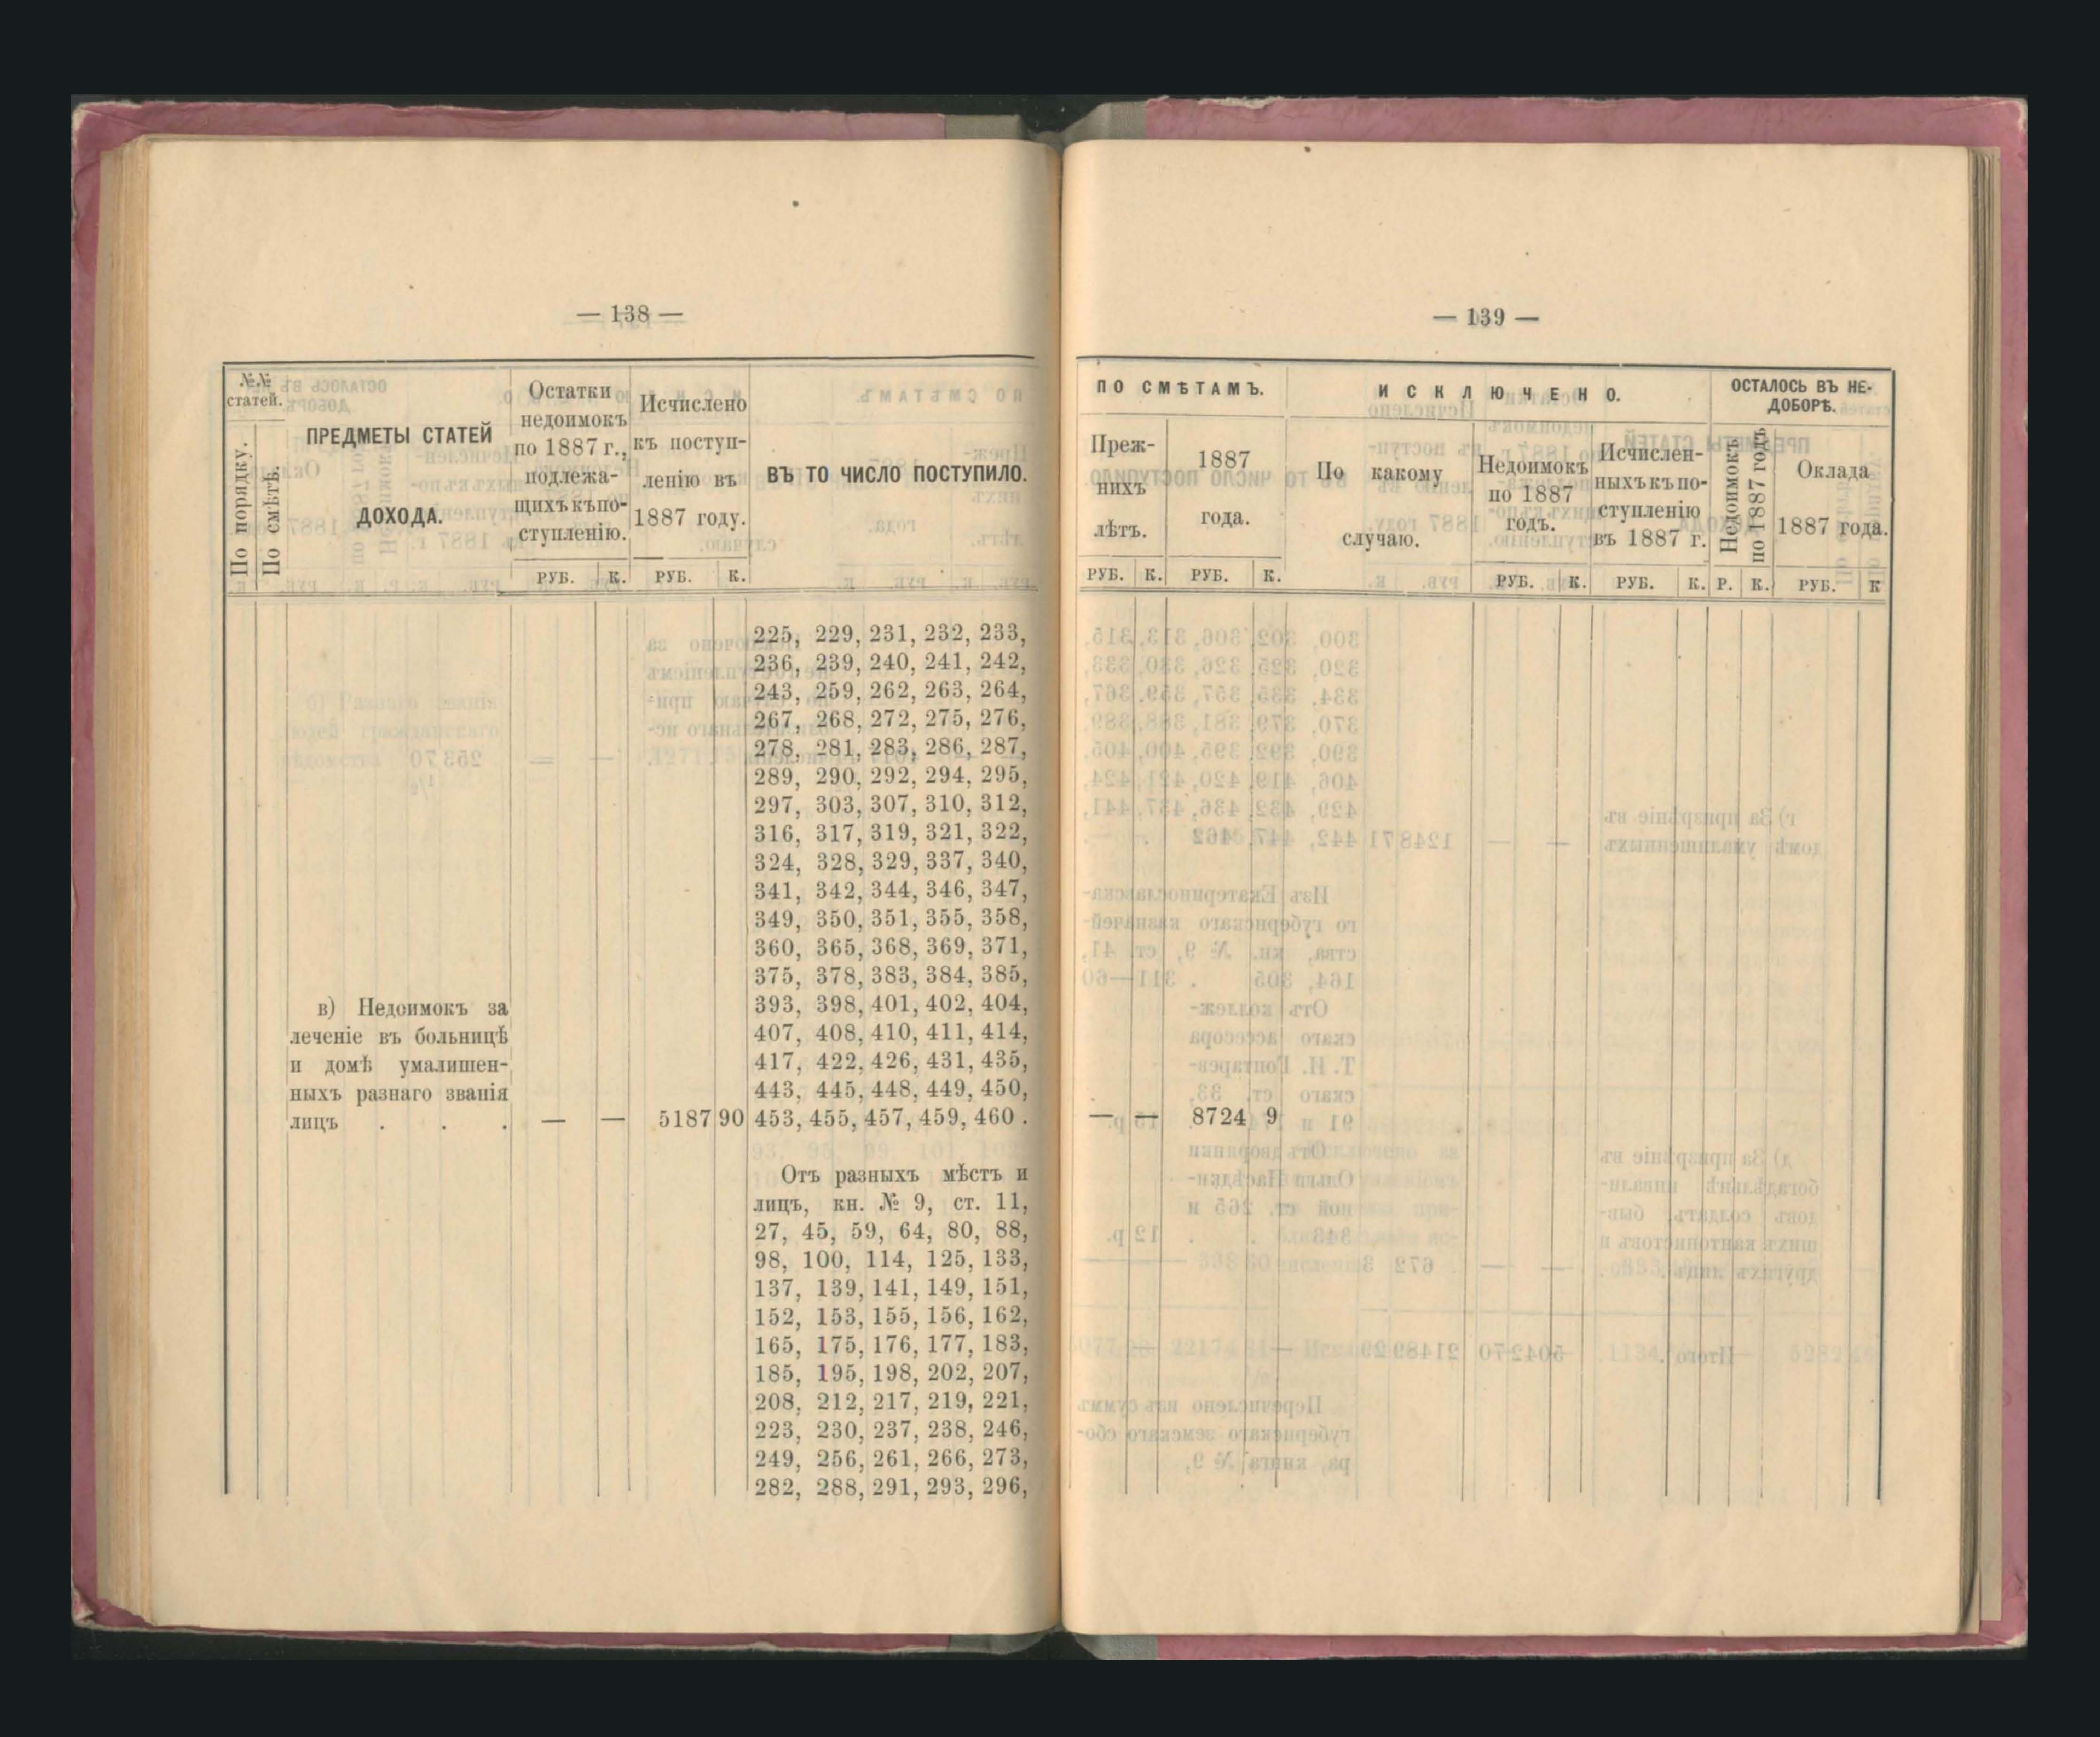 — 138 —
№№ статей.
По порядку.
По смѣтѣ.
ПРЕДМЕТЫ СТАТЕЙ
ДОХОДА.
Остатки
недоимокъ
по 1887 г.,
подлежа-
щихъ къ по-
ступленію.
РУБ. К.
Исчислено
къ поступ-
ленію въ
1887 году.
РУБ. К.
ВЪ ТО ЧИСЛО ПОСТУПИЛО.
225, 229, 231, 232, 233,
236, 239, 240, 241, 242,
243, 259, 262, 263, 264,
267, 268, 272, 275, 276,
278, 281, 283, 286, 287,
289, 290, 292, 294, 295,
297, 303, 307, 310, 312,
316, 317, 319, 321, 322,
324, 328, 329, 337, 340,
341, 342, 344, 346, 347,
349, 350, 351, 355, 358,
360, 365, 368, 369, 371,
375, 378, 383, 384, 385,
в) Недоимокъ за 393, 398, 401, 402, 404,
леченіе въ больницѣ 407, 408, 410, 411, 414,
и домѣ умалишен- 417, 422, 426, 431, 435,
ныхъ разнаго званія 443, 445, 448, 449, 450,
лицъ . . . — — 5187 90 453, 455, 457, 459, 460 .
Отъ разныхъ мѣстъ и
лицъ, кн. № 9, ст. 11,
27, 45, 59, 64, 80, 88,
98, 100, 114, 125, 133,
137, 139, 141, 149, 151,
152, 153, 155, 156, 162,
165, 175, 176, 177, 183,
185, 195, 198, 202, 207,
208, 212, 217, 219, 221,
223, 230, 237, 238, 246,
249, 256, 261, 266, 273,
282, 288, 291, 293, 296,
— 139 —
ПО СМѢТАМЪ.
Преж-
нихъ
лѣтъ.
РУБ. К.
1887
года.
РУБ. К.
ИСКЛЮЧЕНО.
По какому
случаю.
Недоимокъ
по 1887
годъ.
РУБ. К.
Исчислен-
ныхъ къ по-
ступленію
въ 1887 г.
РУБ. К.
ОСТАЛОСЬ ВЪ НЕ-
ДОБОРѢ.
Недоимокъ
по 1887 годъ
Р. К.
Оклада
1887 года.
РУБ. К
— — 8724 9